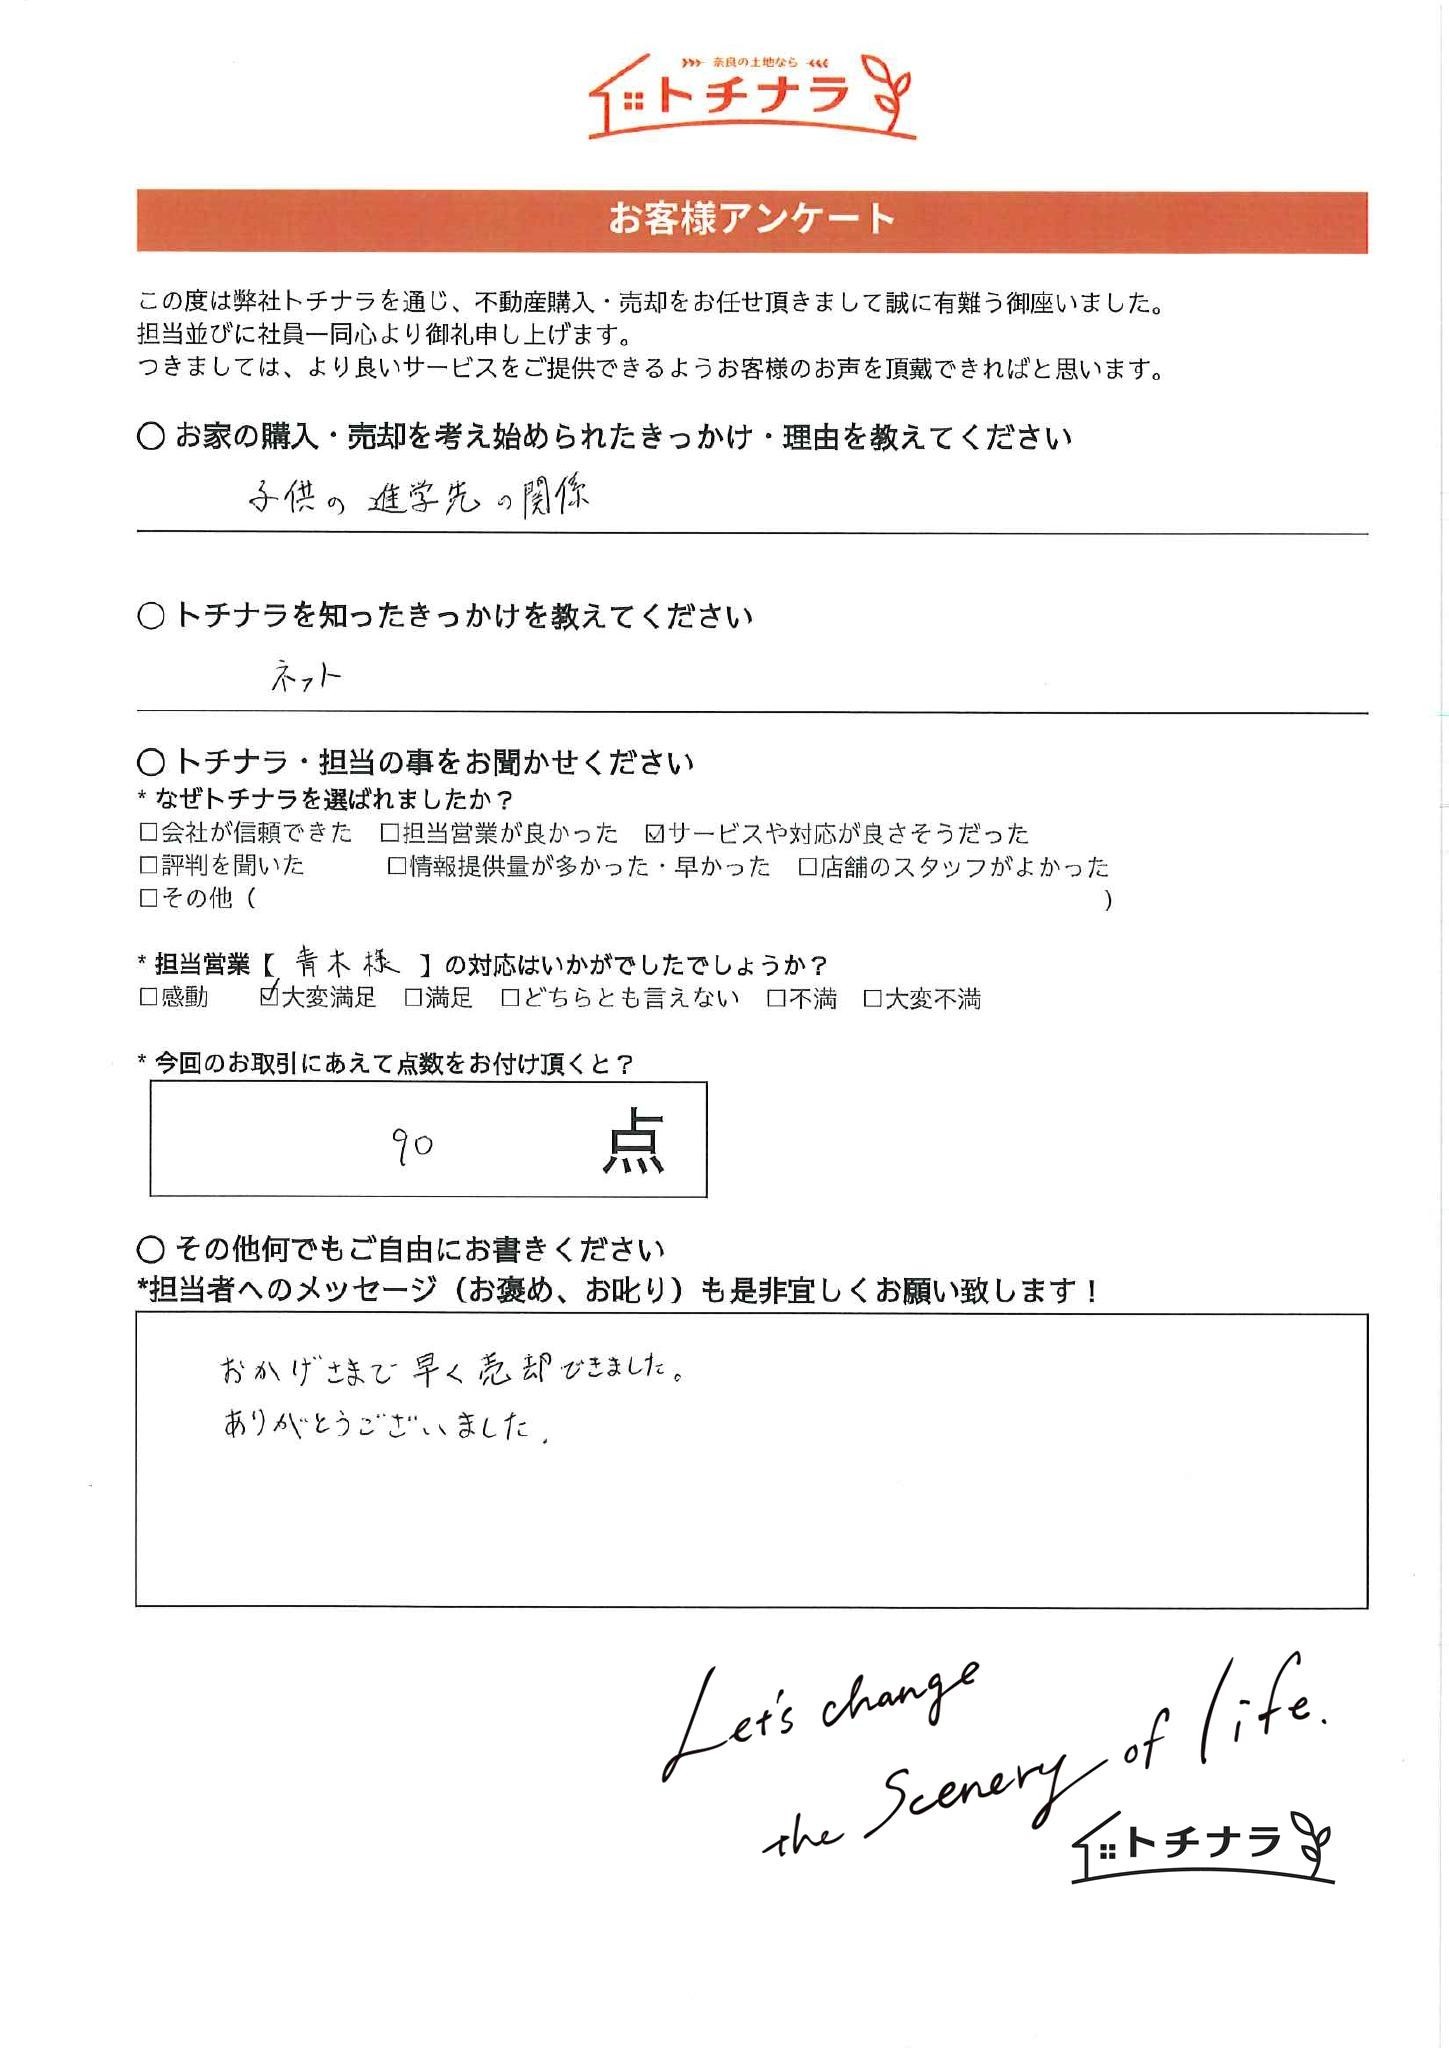 奈良の土地なら
トチナラ
お客様アンケート
この度は弊社トチナラを通じ、不動産購入・売却をお任せ頂きまして誠に有難う御座いました。
担当並びに社員一同心より御礼申し上げます。
つきましては、より良いサービスをご提供できるようお客様のお声を頂戴できればと思います。
○ お家の購入・売却を考え始められたきっかけ・理由を教えてください
子供の進学先の関係
○ トチナラを知ったきっかけを教えてください
ネット
○ トチナラ・担当の事をお聞かせください
* なぜトチナラを選ばれましたか？
□会社が信頼できた □担当営業が良かった ☑サービスや対応が良さそうだった
□評判を聞いた □情報提供量が多かった・早かった □店舗のスタッフがよかった
□その他（ ）
* 担当営業【 青木様 】の対応はいかがでしたでしょうか？
□感動 ☑大変満足 □満足 □どちらとも言えない □不満 □大変不満
* 今回のお取引にあえて点数をお付け頂くと？
90 点
○ その他何でもご自由にお書きください
*担当者へのメッセージ（お褒め、お叱り）も是非宜しくお願い致します！
おかげさまで早く売却できました。
ありがとうございました.
Let's change
the Scenery of life.
トチナラ